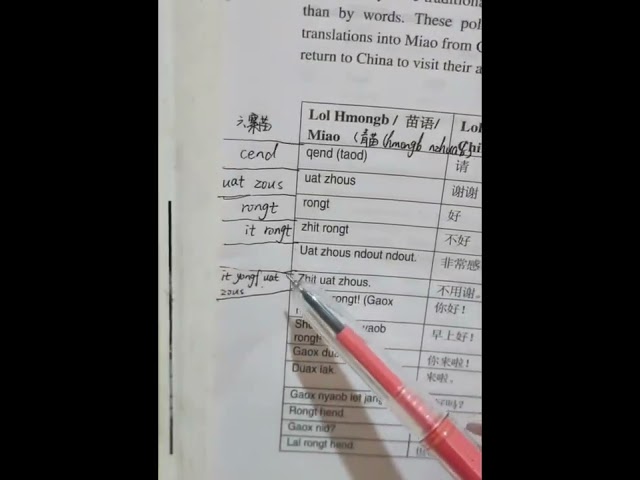 than by words. These pol
translations into Miao from
return to China to visit their a
六寨苗
Lol Hmongb / 苗语/
Miao (青苗 (hmongb nzhuab)
Lol
cend
qend (taod)
请
uat zous
uat zhous
谢谢
rongt
rongt
好
it rongt
zhit rongt
不好
Uat zhous ndout ndout.
非常感
it yongf uat
zous
Zhit uat zhous.
不用谢。
rongt! (Gaox
你好!
早上好!
Gaox
你来啦!
Duax lak.
来啦。
Gaox nyaob lot
Rongt hend.
Gaox nid?
Lal rongt hend.